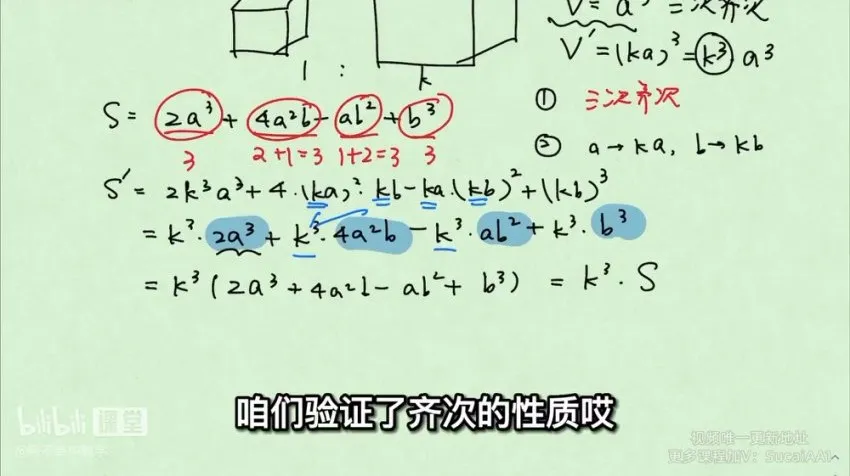 V = a³ 三次齐次
V′ = (ka)³ = k³ · a³
1 : k
① 三次齐次
S = 2a³ + 4a²b - ab² + b³
3 2+1=3 1+2=3 3
② a → ka, b → kb
S′ = 2k³a³ + 4·(ka)²·kb - ka·(kb)² + (kb)³
= k³·2a³ + k³·4a²b - k³·ab² + k³·b³
= k³(2a³ + 4a²b - ab² + b³) = k³·S
咱们验证了齐次的性质哎
bilibili 课堂
视频唯一更新地址
更多课程加V：SucaiAAI